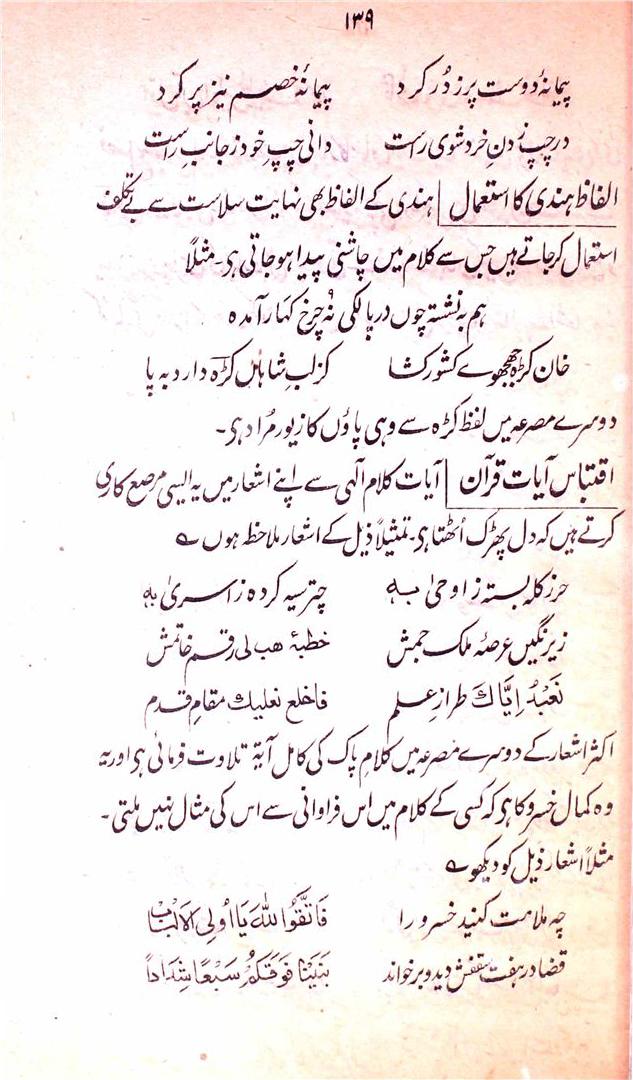 ۱۳۹
پیمانۂ دوست پر ز دُر کرد پیمانۂ خصم نیز پر کرد
در چپ زدنِ خرد شوی راست دانی چپِ خود ز جانبِ راست
الفاظ ہندی کا استعمال | ہندی کے الفاظ بھی نہایت سلاست سے بے تکلف
استعمال کر جاتے ہیں جس سے کلام میں چاشنی پیدا ہو جاتی ہی۔ مثلاً
ہم بہ نشستہ چوں در پالکی نُہ چرخ کہار آمدہ
خان کڑہ چھجوے کشور کشا کز لبِ شاہاں کڑہ دارد بہ پا
دوسرے مصرعہ میں لفظ کڑہ سے وہی پاؤں کا زیور مُراد ہی۔
اقتباس آیات قرآن | آیات کلام الٰہی سے اپنے اشعار میں یہ ایسی مرصع کاری
کرتے ہیں کہ دل پھڑک اُٹھتا ہی۔ تمثیلاً ذیل کے اشعار ملاحظہ ہوں ؎
حرز کلہ بستہ ز اوحیٰ بہ چتر سیہ کردہ ز اسریٰ بہ
زیر نگیں عرصۂ ملک جمش خطبۂ ھب لی رقم خاتمش
نَعْبُدُ اِیَّاكَ طرازِ علم فاخلع نعلیك مقامِ قدم
اکثر اشعار کے دوسرے مصرعہ میں کلامِ پاک کی کامل آیۃ تلاوت فرمائی ہی اور یہ
وہ کمال خسرو کا ہی کہ کسی کے کلام میں اس فراوانی سے اس کی مثال نہیں ملتی۔
مثلاً اشعار ذیل کو دیکھو ؎
چہ ملامت کنید خسرو را فَاتَّقُوا اللهَ یَا اُولِی الْاَلْبَابْ
قضا در ہفت سقفش دید و برخواند بَنَیْنَا فَوْقَكُمْ سَبْعًا شِدَادًا